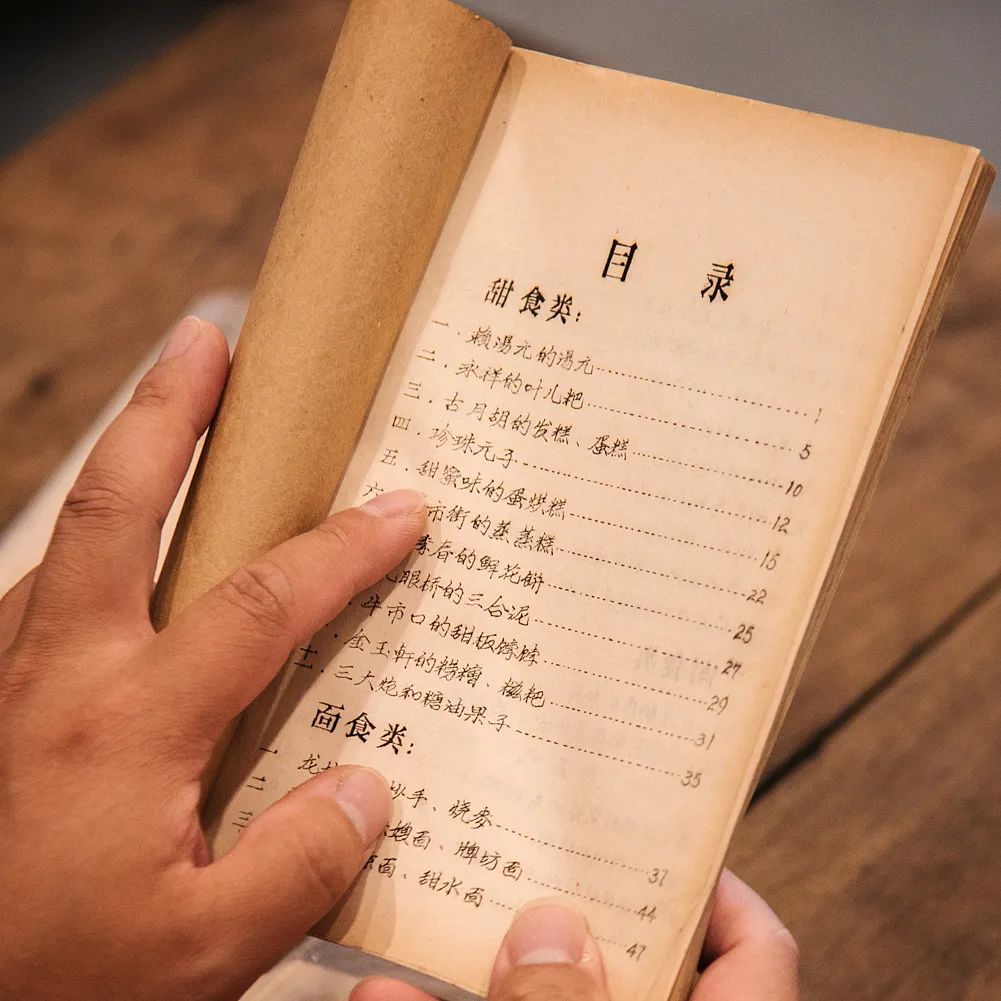 目录
甜食类：
一．赖湯元的湯元……1
二．永祥的叶儿粑……5
三．古月胡的发糕、蛋糕……10
四．珍珠元子……12
五．甜蜜味的蛋烘糕……15
六 市街的蒸蒸糕……22
春的鲜花餅……25
眼桥的三合泥……27
．牛市口的甜板𫗦𫗦……29
．金玉軒的捞糟、糍粑……31
十一．三大炮和糖油果子……35
面食类：
一 龙 抄手、烧麥……37
二 嫂面、牌坊面……44
三 面、甜水面……47